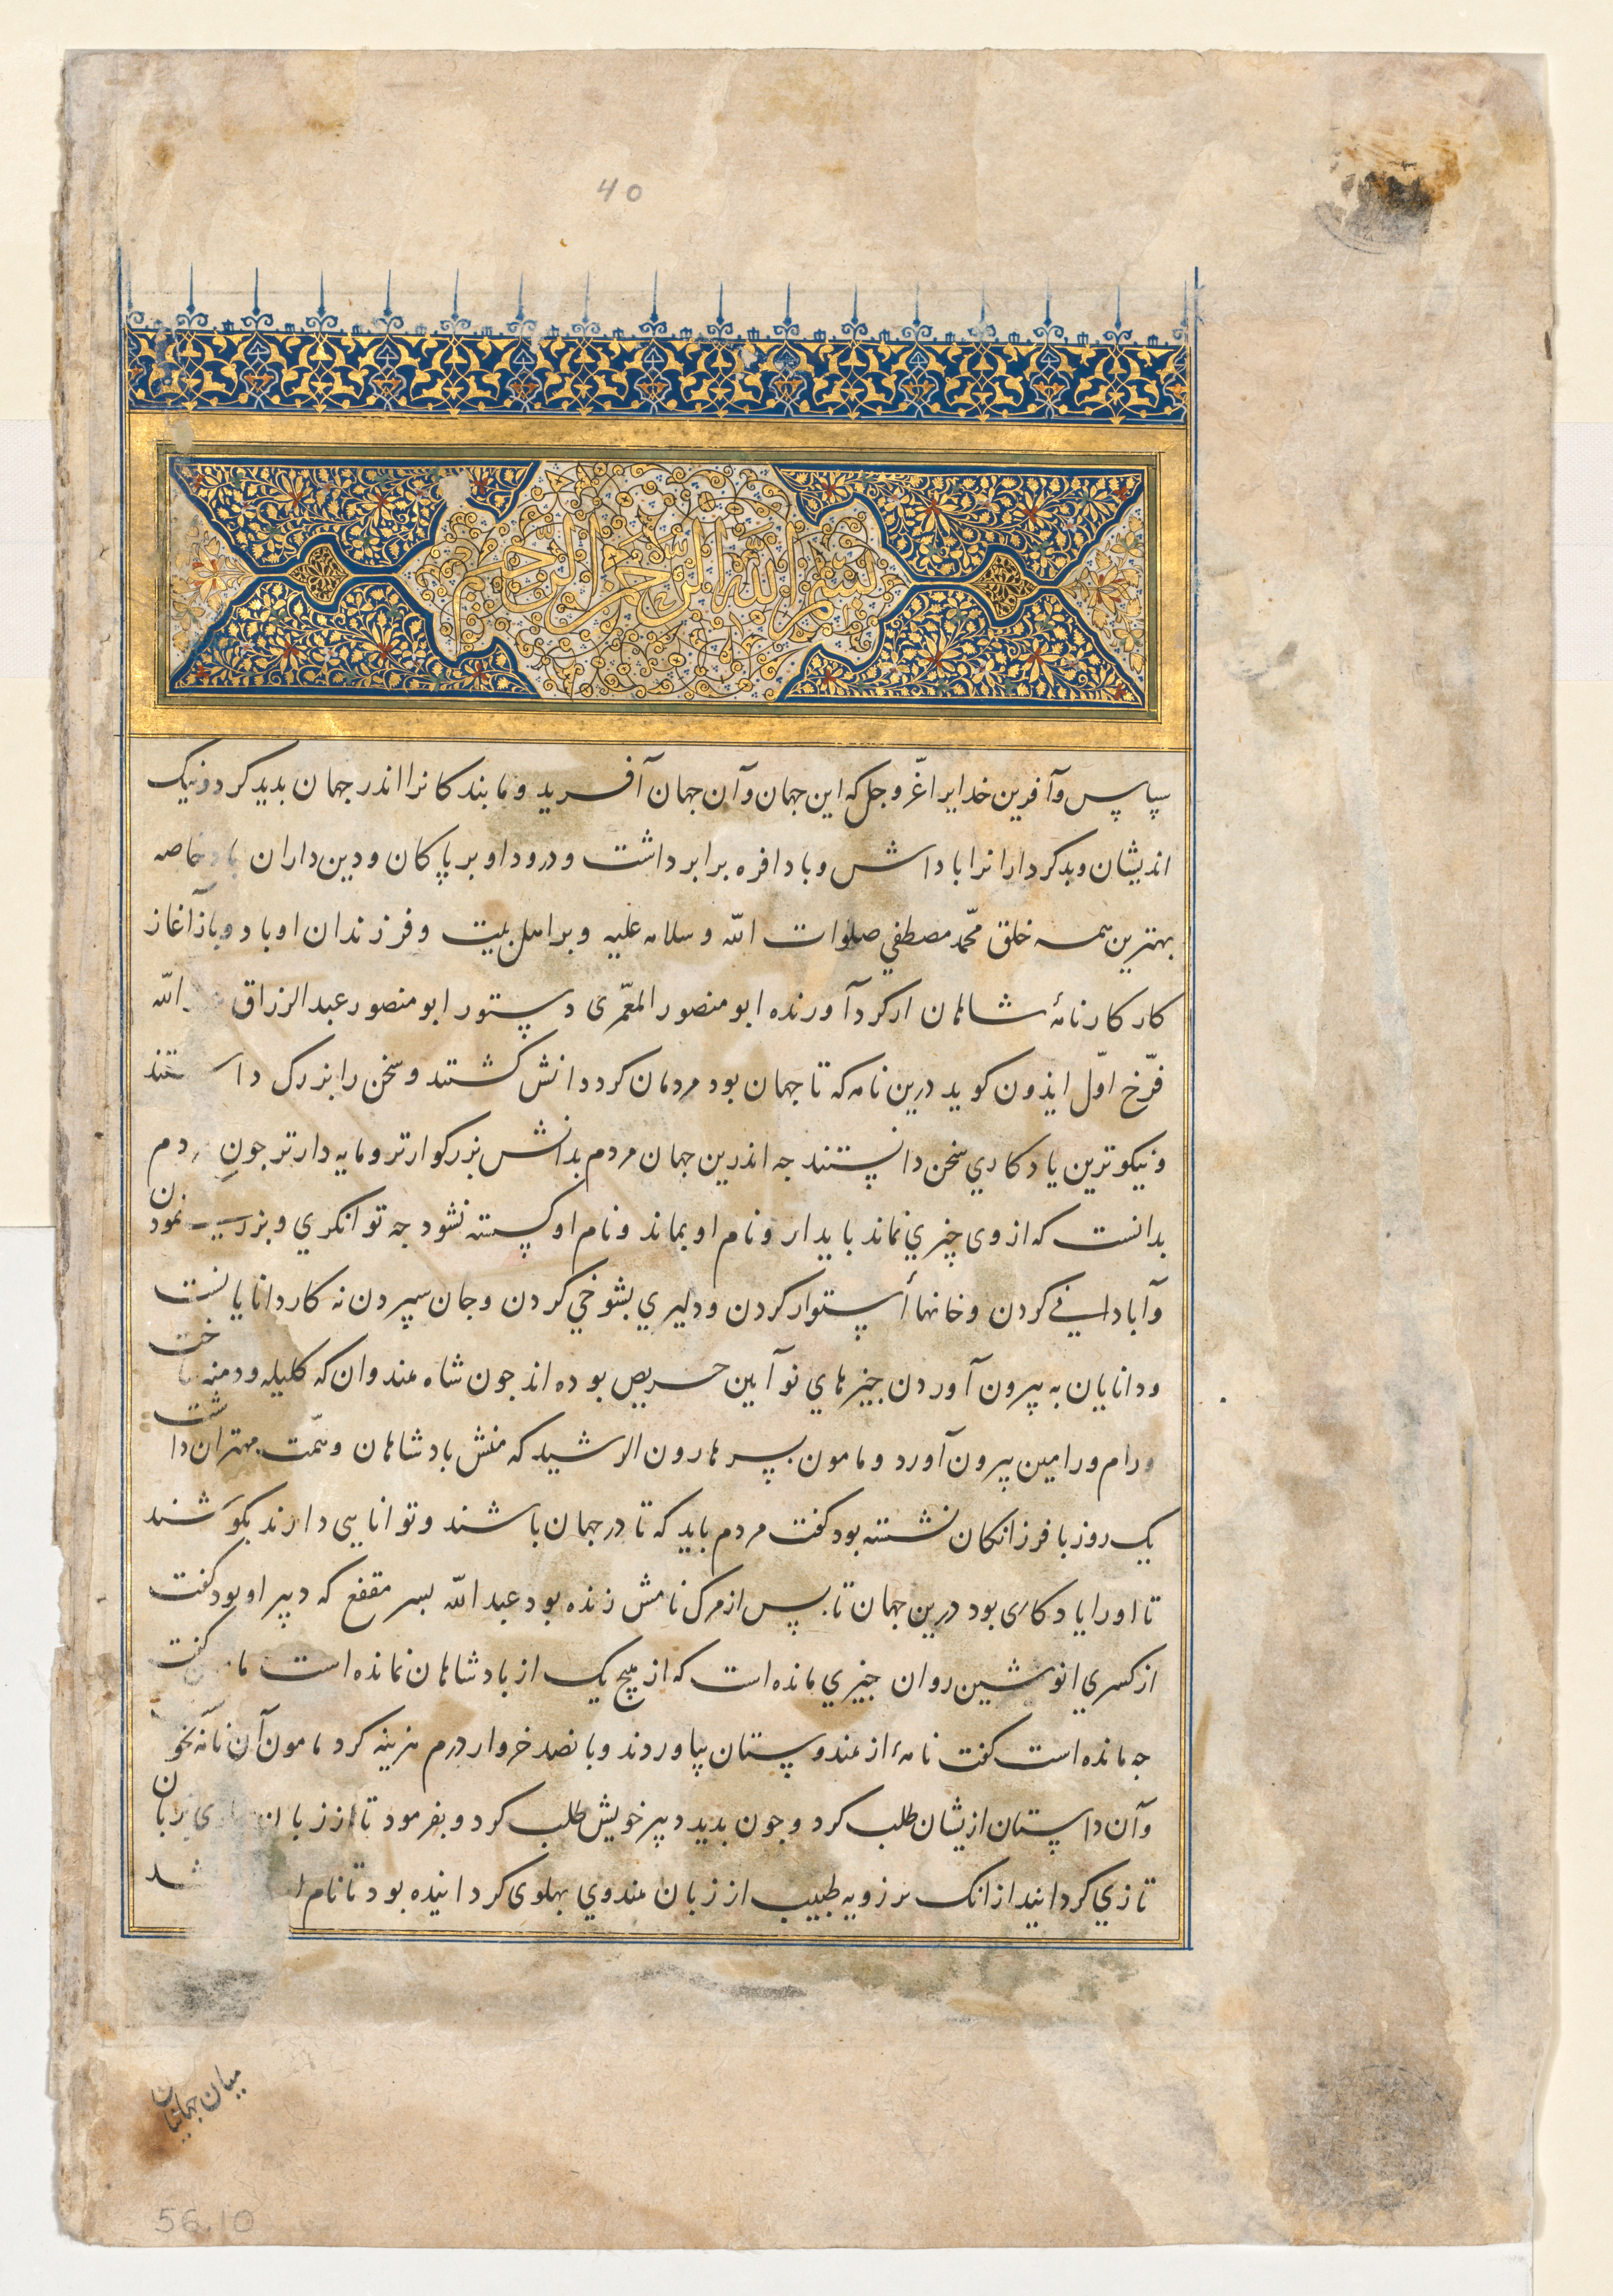 40
بسم الله الرحمن الرحیم
سپاس وآفرین خدایرا عزّ وجل که این جهان وآن جهان آفرید وما بندکانرا اندر جهان بدید کرد ونیک
اندیشان وبدکردارانرا باداش وباد افره برابر داشت ودرود او بر پاکان ودین داران باد خاصه
بهترین همه خلق محمّد مصطفي صلوات الله وسلامه علیه وبر اهل بیت وفرزندان او باد وباز آغاز
کار کارنامهٔ شاهان از کرد آورنده ابو منصور المعمّری دستور ابو منصور عبد الرزاق الله
فرّخ اوّل ایذون کوید درین نامه که تا جهان بود مردمان کرد دانش کشتند وسخن را بزرک داشتند
ونیکوترین یادکاري سخن دانستند جه اندرین جهان مردم بدانش بزرکوارتر ومایه دارتر جون مردم
بدانست که از وی چیزي نماند بایدار ونام او بماند ونام او کسسته نشود جه توانکري وبزرکی نمودن
وآبادانے کردن وخانهاأ استوار کردن ودلیري بشوخي کردن وجان سپردن نه کار دانایانست
ودانایان به بیرون آوردن جیزهاي نو آیین حریص بوده اند جون شاه هندوان که کلیله ودمنه ساخت
ورام ورامین بیرون آورد ومامون پسر هارون الرشید که منش بادشاهان وهمّت مهتران داشت
یک روز با فرزانکان نشسته بود کفت مردم باید که تا در جهان باشند وتوانایی دارند بکوشند
تا اورا یادکاری بود درین جهان تا پس از مرک نامش زنده بود عبد الله بسر مقفع که دبیر او بود کفت
از کسري انوشین روان جیزي مانده است که از هیچ یک از بادشاهان نمانده است کفت
جه مانده است کفت نامهٔ از هندوستان بیاوردند وبانصد خروار درم هزینه کرد مامون آن نامه بخو
وآن داستان ازیشان طلب کرد وجون بدید دبیر خویش طلب کرد وبفرمود تا از زبان بزبان
تازي کردانید ازانک برزویه طبیب از زبان هندوي بهلوی کردانیده بود تا نام شد
میان جهانیان
56.10